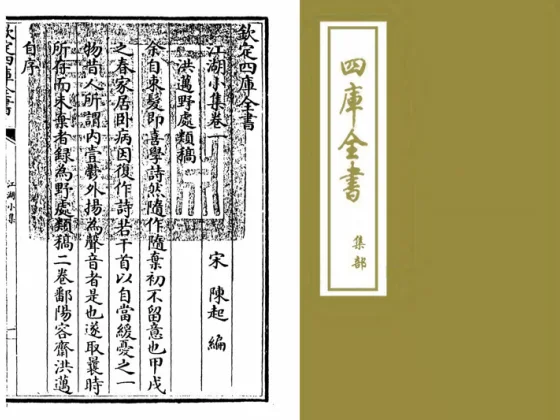 欽定四庫全書
江湖小集卷一
宋 陳起 編
洪邁野處類稿
余自束髮即喜學詩然隨作隨棄初不留意也甲戌
之春家居卧病因復作詩若干首以自當緩憂之一
物昔人所謂内壹鬱外揚為聲音者是也遂取曩時
所存而未棄者録為野處類稿二卷鄱陽容齋洪邁
自序
欽定四庫全書
江湖小集
四庫全書
集部